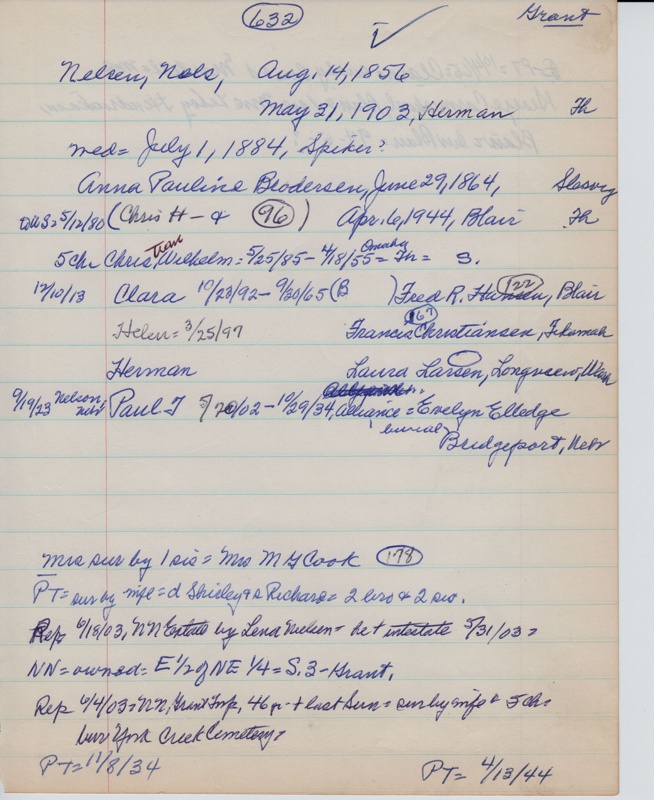 632
Grant
Nelsen, Nels, Aug. 14, 1856
May 31, 1903, Herman Th
wed= July 1, 1884, Spiker?
Anna Pauline Brodersen, June 29, 1864, Slesvig
DWS=5/12/80 (Chris H - & 96) Apr. 6, 1944, Blair Th
5 ch Chris, Wilhelm = 5/25/85 - 4/18/55 = Omaha Th = S.
12/10/13 Clara 10/23/92 - 9/30/65 (B ) Fred R. Hansen, Blair 122
Helen = 3/25/97 Francis Christiansen, Tekamah 167
Herman Laura Larsen, Longview, Wash
9/19/23 Nelson, Paul T /02 - 10/29/34, Alliance = Evelyn Elledge
burial Bridgeport, Nebr
Mrs sur by 1 sis = Mrs M G Cook 178
PT = sur by mfe = d Shirley & s Richard = 2 bro & 2 sis.
Rep 6/18/03, NN Estate by Lena Nielsen = he + intestate 5/31/03 =
NN = owned = E 1/2 of NE 1/4 = S. 3 - Grant.
Rep 6/4/03 = NN, Grant Twp, 46 yr - + last Sun = sur by mfe & 5 ch =
bur York Creek Cemetery =
PT = 11/8/34
PT = 4/13/44